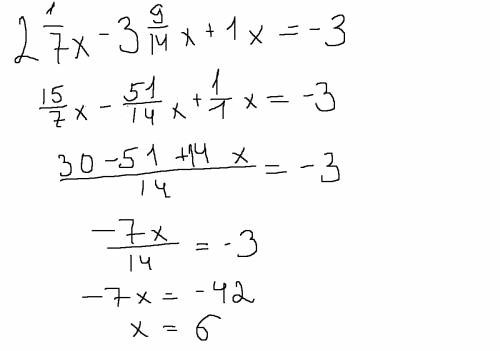 2 1/7x - 3 9/14 x + 1x = -3
15/7 x - 51/14 x + 1/1 x = -3
30 - 51 + 14 x / 14 = -3
-7x / 14 = -3
-7x = -42
x = 6